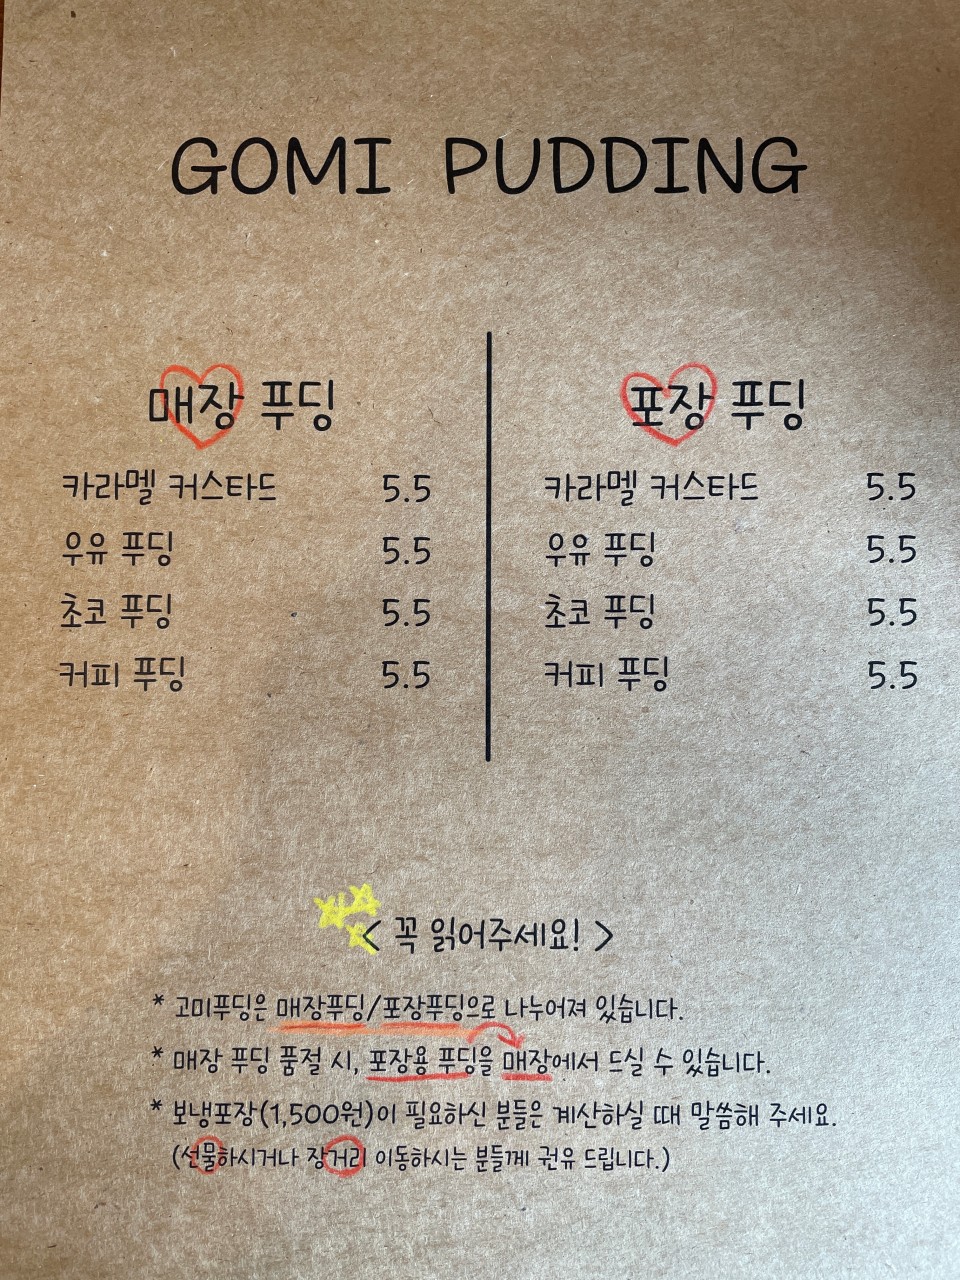 GOMI PUDDING
매장 푸딩
카라멜 커스타드 5.5
우유 푸딩 5.5
초코 푸딩 5.5
커피 푸딩 5.5
포장 푸딩
카라멜 커스타드 5.5
우유 푸딩 5.5
초코 푸딩 5.5
커피 푸딩 5.5
< 꼭 읽어주세요! >
* 고미푸딩은 매장푸딩/포장푸딩으로 나누어져 있습니다.
* 매장 푸딩 품절 시, 포장용 푸딩을 매장에서 드실 수 있습니다.
* 보냉포장(1,500원)이 필요하신 분들은 계산하실 때 말씀해 주세요.
(선물하시거나 장거리 이동하시는 분들께 권유 드립니다.)